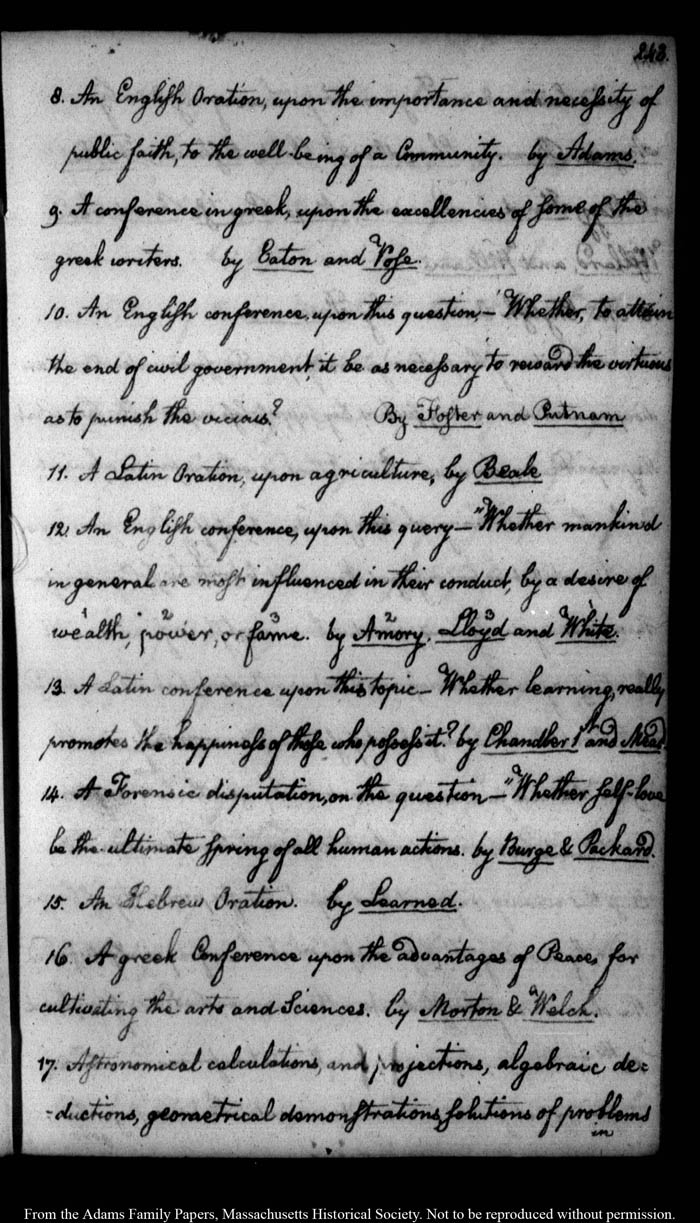 243.
8. An English Oration, upon the importance and necessity of
public faith, to the well-being of a Community. by Adams.
9. A conference in greek, upon the excellencies of some of the
greek writers. by Eaton and Vose.
10. An English conference, upon this question,— "Whether, to attain
the end of civil government, it be as necessary to reward the virtuous
as to punish the vicious? By Foster and Putnam
11. A Latin Oration, upon agriculture, by Beale
12. An English conference, upon this query— "Whether mankind
in general are most influenced in their conduct, by a desire of
1 2 3
wealth, power, or fame. by Amory, Lloyd and White.
2 3 1
13. A Latin conference upon this topic— Whether learning, really
promotes the happiness of those who possess it? by Chandler 1st and Mead.
14. A Forensic disputation, on the question— "Whether self-love
be the ultimate spring of all human actions. by Burge & Packard.
15. An Hebrew Oration. by Learned.
16. A greek Conference upon the advantages of Peace, for
cultivating the arts and Sciences. by Morton & Welch.
17. Astronomical calculations, and projections, algebraic de=
-ductions, geometrical demonstrations, solutions of problems
in
From the Adams Family Papers, Massachusetts Historical Society. Not to be reproduced without permission.